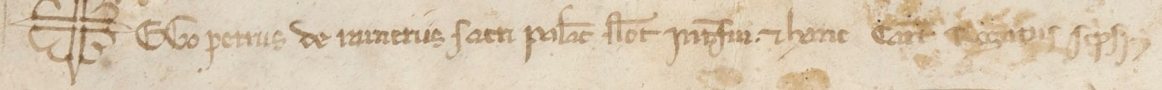 Ego petrus de numeriis sacri palac not interfui. et hanc Cart Rogatus scripsi